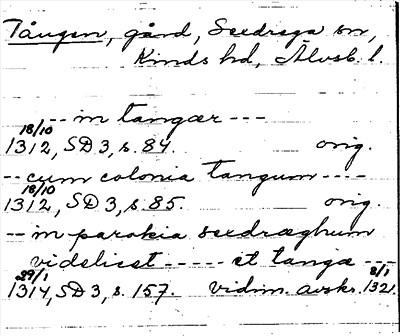 Tången, gård, Sexdrega sn,
Kinds hd, Älvsb. l.
-- in tangær ---
18/10
1312, SD 3, s. 84. orig.
-- cum colonia tangum ----
18/10
1312, SD 3, s. 85. orig.
-- in parokia sexdræghum
videlicet ----- et tangæ ---
29/1 8/1
1314, SD 3, s. 157. vidim. avskr. 1321.